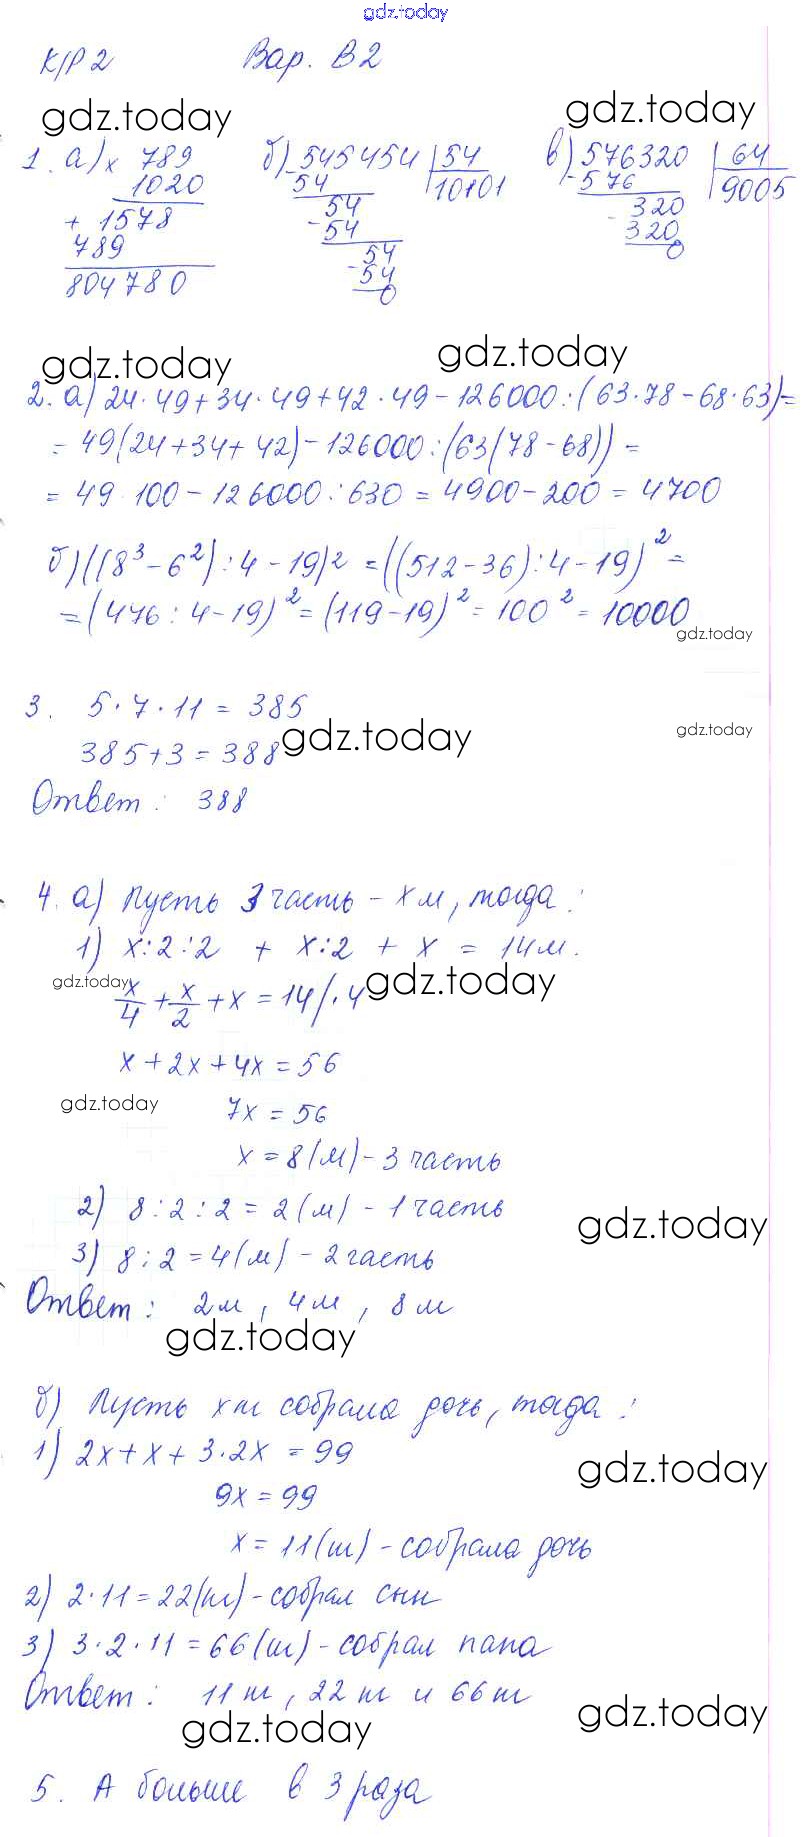 gdz.today
К/Р 2 Вар. В2
gdz.today gdz.today
1. а) × 789 б) - 545454 | 54 в) - 576320 | 64
1020 54 10101 576 9005
+ 1578 54 320
789 - 54 - 320
804780 54 0
- 54
0
gdz.today gdz.today
2. а) 24·49+34·49+42·49-126000:(63·78-68·63)=
= 49(24+34+42)-126000:(63(78-68)) =
= 49·100-126000:630 = 4900-200 = 4700
б) ((8³-6²):4-19)2 = ((512-36):4-19)² =
= (476:4-19)² = (119-19)² = 100² = 10000
gdz.today
3. 5·7·11 = 385
gdz.today
385+3 = 388 gdz.today
Ответ: 388
4. а) Пусть 3 часть - х м, тогда:
1) х:2:2 + х:2 + х = 14м.
gdz.today х/4 + х/2 + х = 14 /·4 gdz.today
х + 2х + 4х = 56
gdz.today 7х = 56
х = 8(м) - 3 часть
2) 8:2:2 = 2(м) - 1 часть
gdz.today
3) 8:2 = 4(м) - 2 часть
Ответ: 2м, 4м, 8м
gdz.today
б) Пусть х ш собрала дочь, тогда:
1) 2х + х + 3·2х = 99
gdz.today
9х = 99
х = 11(ш) - собрала дочь
2) 2·11 = 22(ш) - собрал сын
3) 3·2·11 = 66(ш) - собрал папа
Ответ: 11 ш, 22 ш и 66 ш
gdz.today gdz.today
5. А больше в 3 раза